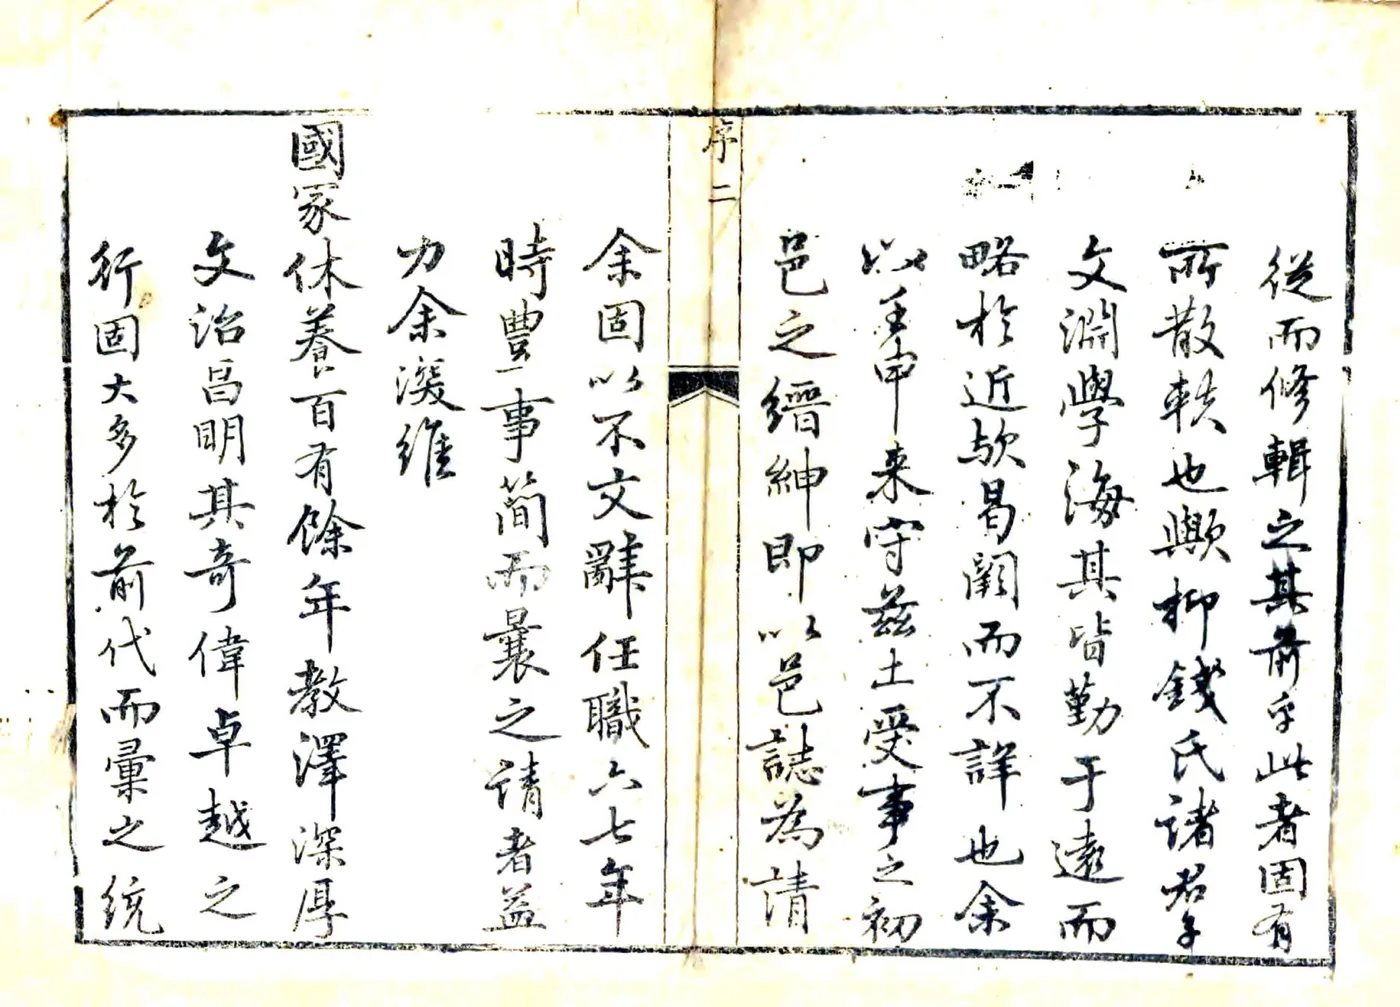 從而修輯之其前乎此者固有
所散軼也歟抑錢氏諸君子
文淵學海其皆勤于遠而
略於近歟曷闕而不詳也余
以壬申来守茲土受事之初
邑之縉紳即以邑誌為請
序二
余固以不文辭任職六七年
時豐事簡而曩之請者益
力余深維
國家休養百有餘年教澤深厚
文治昌明其奇偉卓越之
行固大多於前代而彙之統